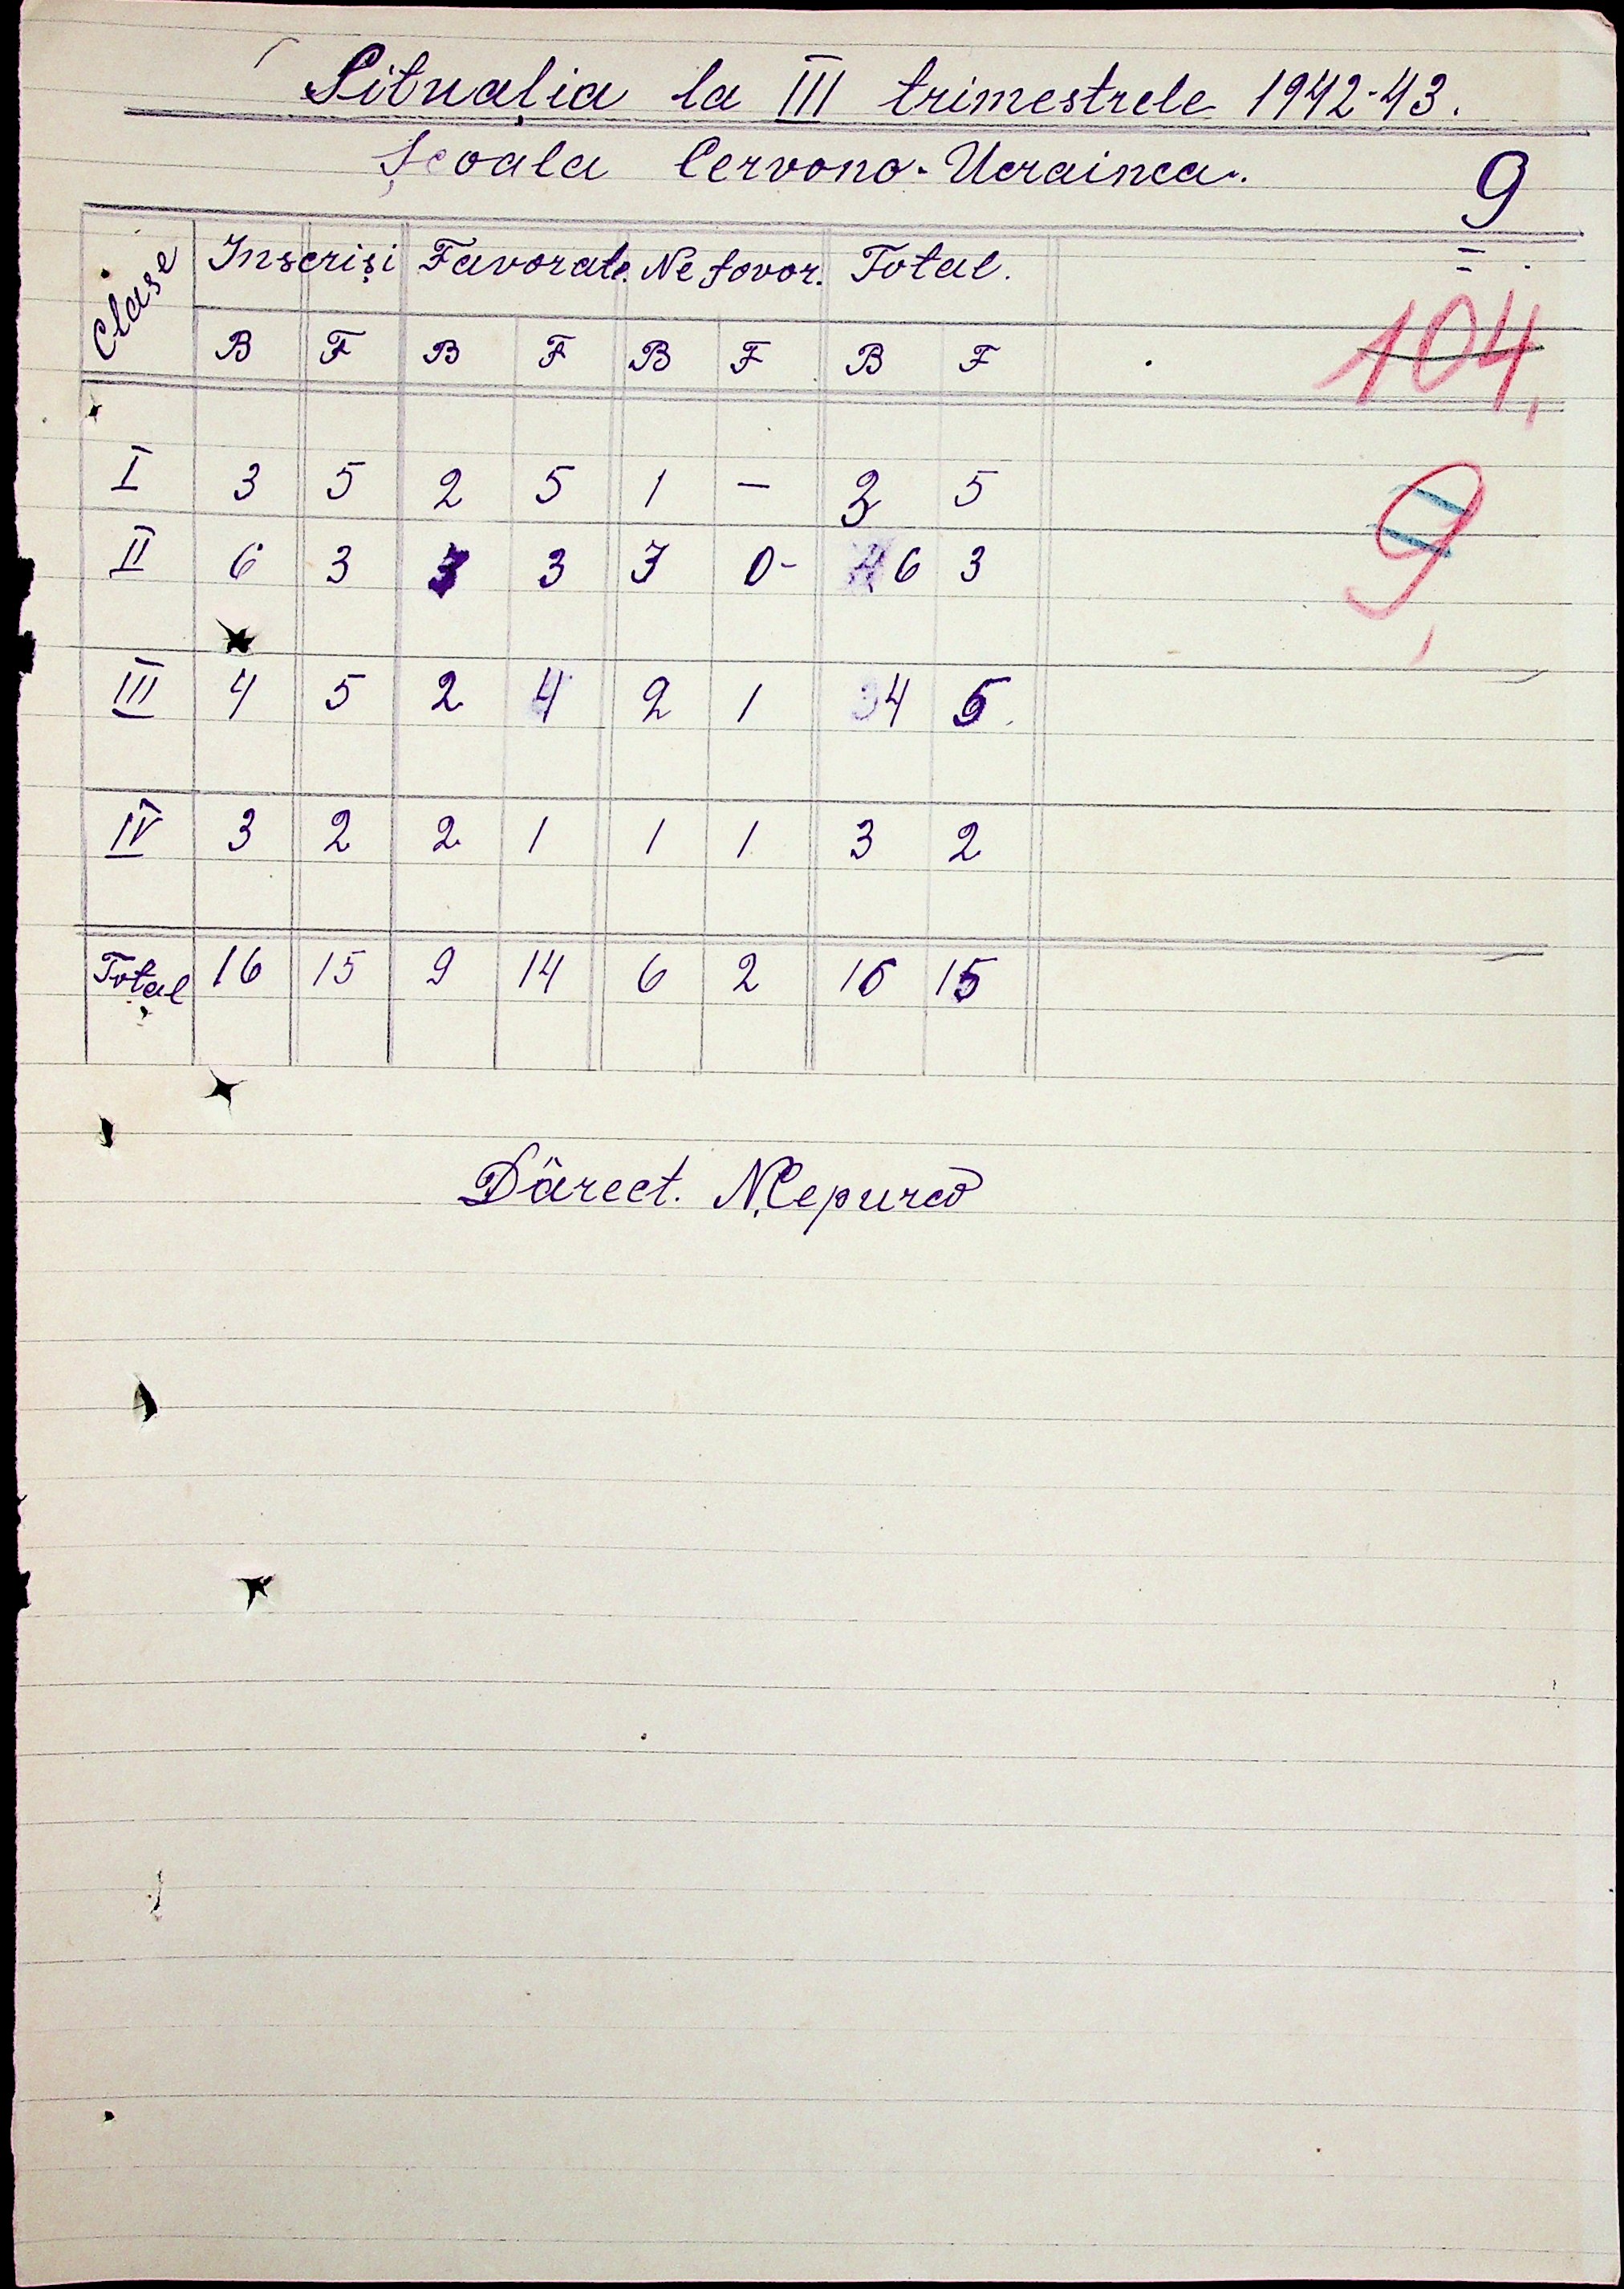 Situaţia la III trimestrele 1942-43.
Şcoala Cervono-Ucrainca.
9
Clase Inscrişi Favorate. Nefovor. Total.
B F B F B F B F
104,
I 3 5 2 5 1 — 3 5
9,
II 6 3 3 3 3 0- 6 3
III 4 5 2 4 2 1 4 5
IV 3 2 2 1 1 1 3 2
Total 16 15 9 14 6 2 16 15
Dârect. N.